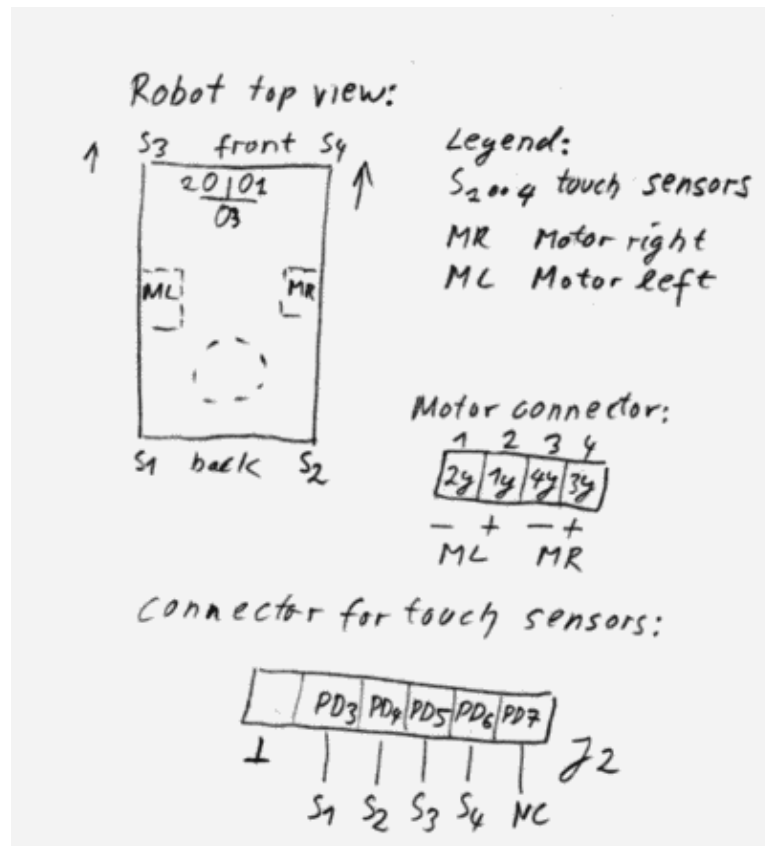 Robot top view:
S3 front S4
20|01
03
ML MR
S1 back S2
Legend:
S1..4 touch sensors
MR Motor right
ML Motor left
Motor connector:
1 2 3 4
2y 1y 4y 3y
- + - +
ML MR
Connector for touch sensors:
PD3 PD4 PD5 PD6 PD7
J2
S1 S2 S3 S4 NC